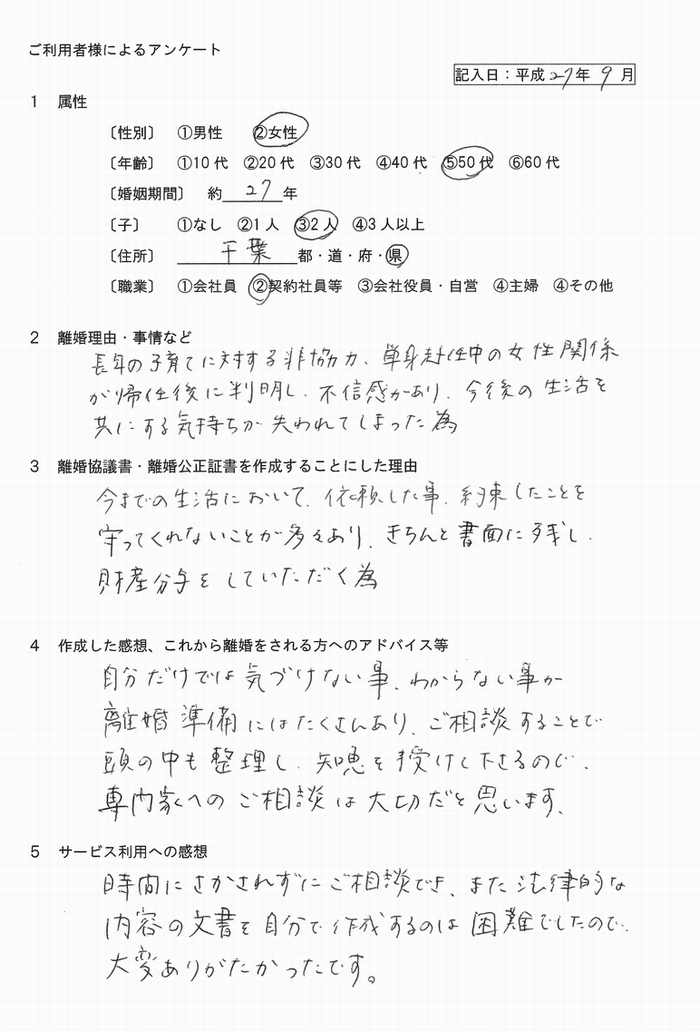 ご利用者様によるアンケート
記入日:平成27年9月
1 属性
〔性別〕 ①男性 ②女性
〔年齢〕 ①10代 ②20代 ③30代 ④40代 ⑤50代 ⑥60代
〔婚姻期間〕 約27年
〔子〕 ①なし ②1人 ③2人 ④3人以上
〔住所〕 千葉都・道・府・県
〔職業〕 ①会社員 ②契約社員等 ③会社役員・自営 ④主婦 ④その他
2 離婚理由・事情など
長年の子育てに対する非協力、単身赴任中の女性関係
が帰任後に判明し、不信感があり、今後の生活を
共にする気持ちが失われてしまった為
3 離婚協議書・離婚公正証書を作成することにした理由
今までの生活において、依頼した事、約束したことを
守ってくれないことが多々あり、きちんと書面に残し、
財産分与をしていただく為
4 作成した感想、これから離婚をされる方へのアドバイス等
自分だけでは気づけない事、わからない事が
離婚準備にはたくさんあり、ご相談することで
頭の中も整理し、知恵を授けて下さるので、
専門家へのご相談は大切だと思います、
5 サービス利用への感想
時間にさかされずにご相談でき、また法律的な
内容の文書を自分で作成するのは困難でしたので、
大変ありがたかったです。